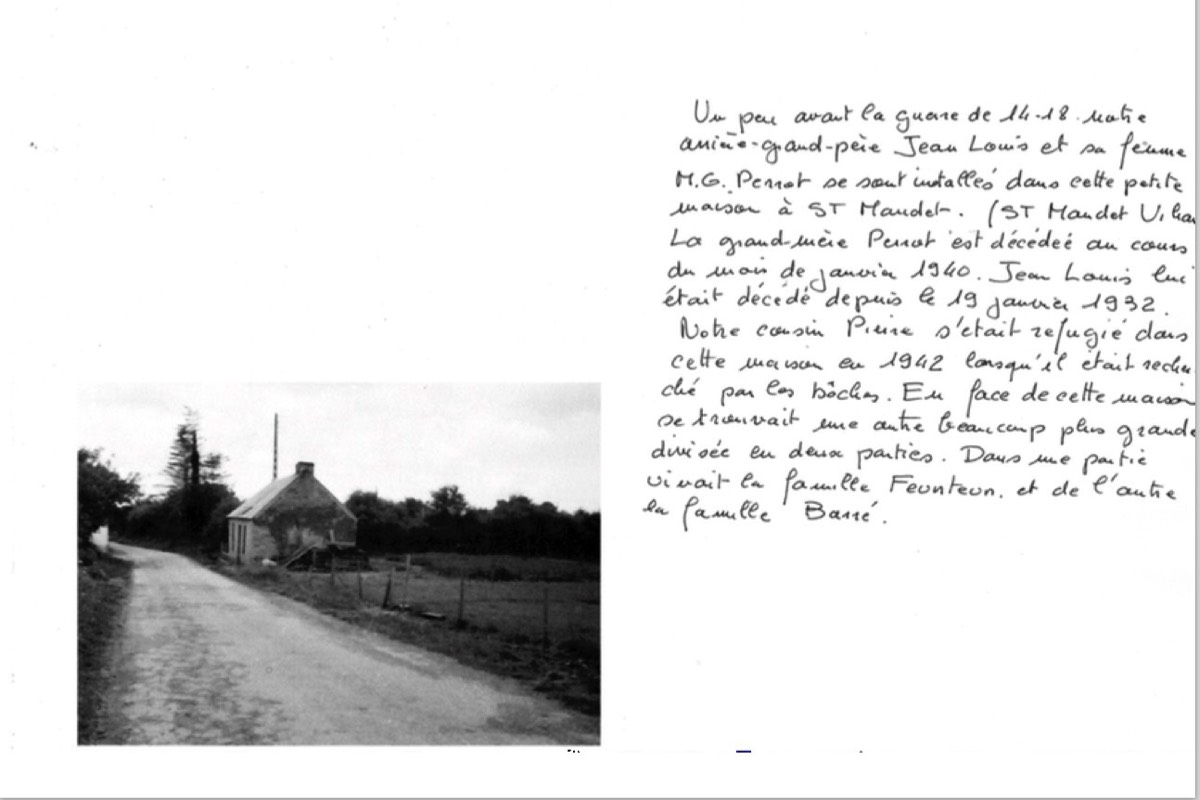 Un peu avant la guerre de 14-18 notre
arrière-grand-père Jean Louis et sa femme
M.G. Perrot se sont installés dans cette petite
maison à ST Mandet. (ST Mandet
La grand-mère Perrot est décédée au cours
du mois de janvier 1940. Jean Louis lui
était décédé depuis le 19 janvier 1932.
Notre cousin Pierre s'était refugié dans
cette maison en 1942 lorsqu'il était recher
ché par les bôches. En face de cette maison
se trouvait une autre beaucoup plus grande
divisée en deux parties. Dans une partie
vivait la famille Feunteun. et de l'autre
la famille Barré.